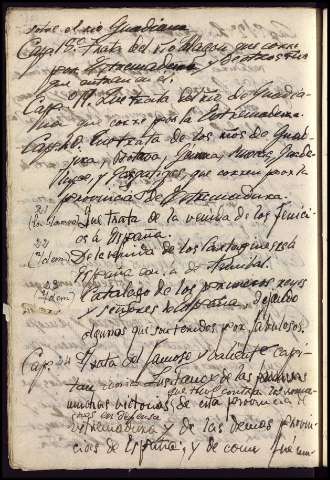 sobre el rio Guadiana
Cap. 18. Trata del rio Alagon que corre
por Extremadura y de otros rios
que entran en él.
Cap. 19. Que trata del rio de Guadia-
na que corre por la Extremadura.
Cap. 20. Que trata de los rios de Guad-
y que corren por la
provincia de Extremadura.
21 Que trata de la venida de los Fenici-
os á España.
22 De la venida de los Cartagineses á
España
23 Catalago de los primeros reyes
y señores de España, dejando
algunos que son tenidos por fabulosos.
Cap. 24 Trata del famoso y valiente capi-
tan Lusitano de las
muchas victorias que tuvo contra los roma-
nos en defensa de esta provincia de
Extremadura y de las demas provin-
cias de España, y de como fué